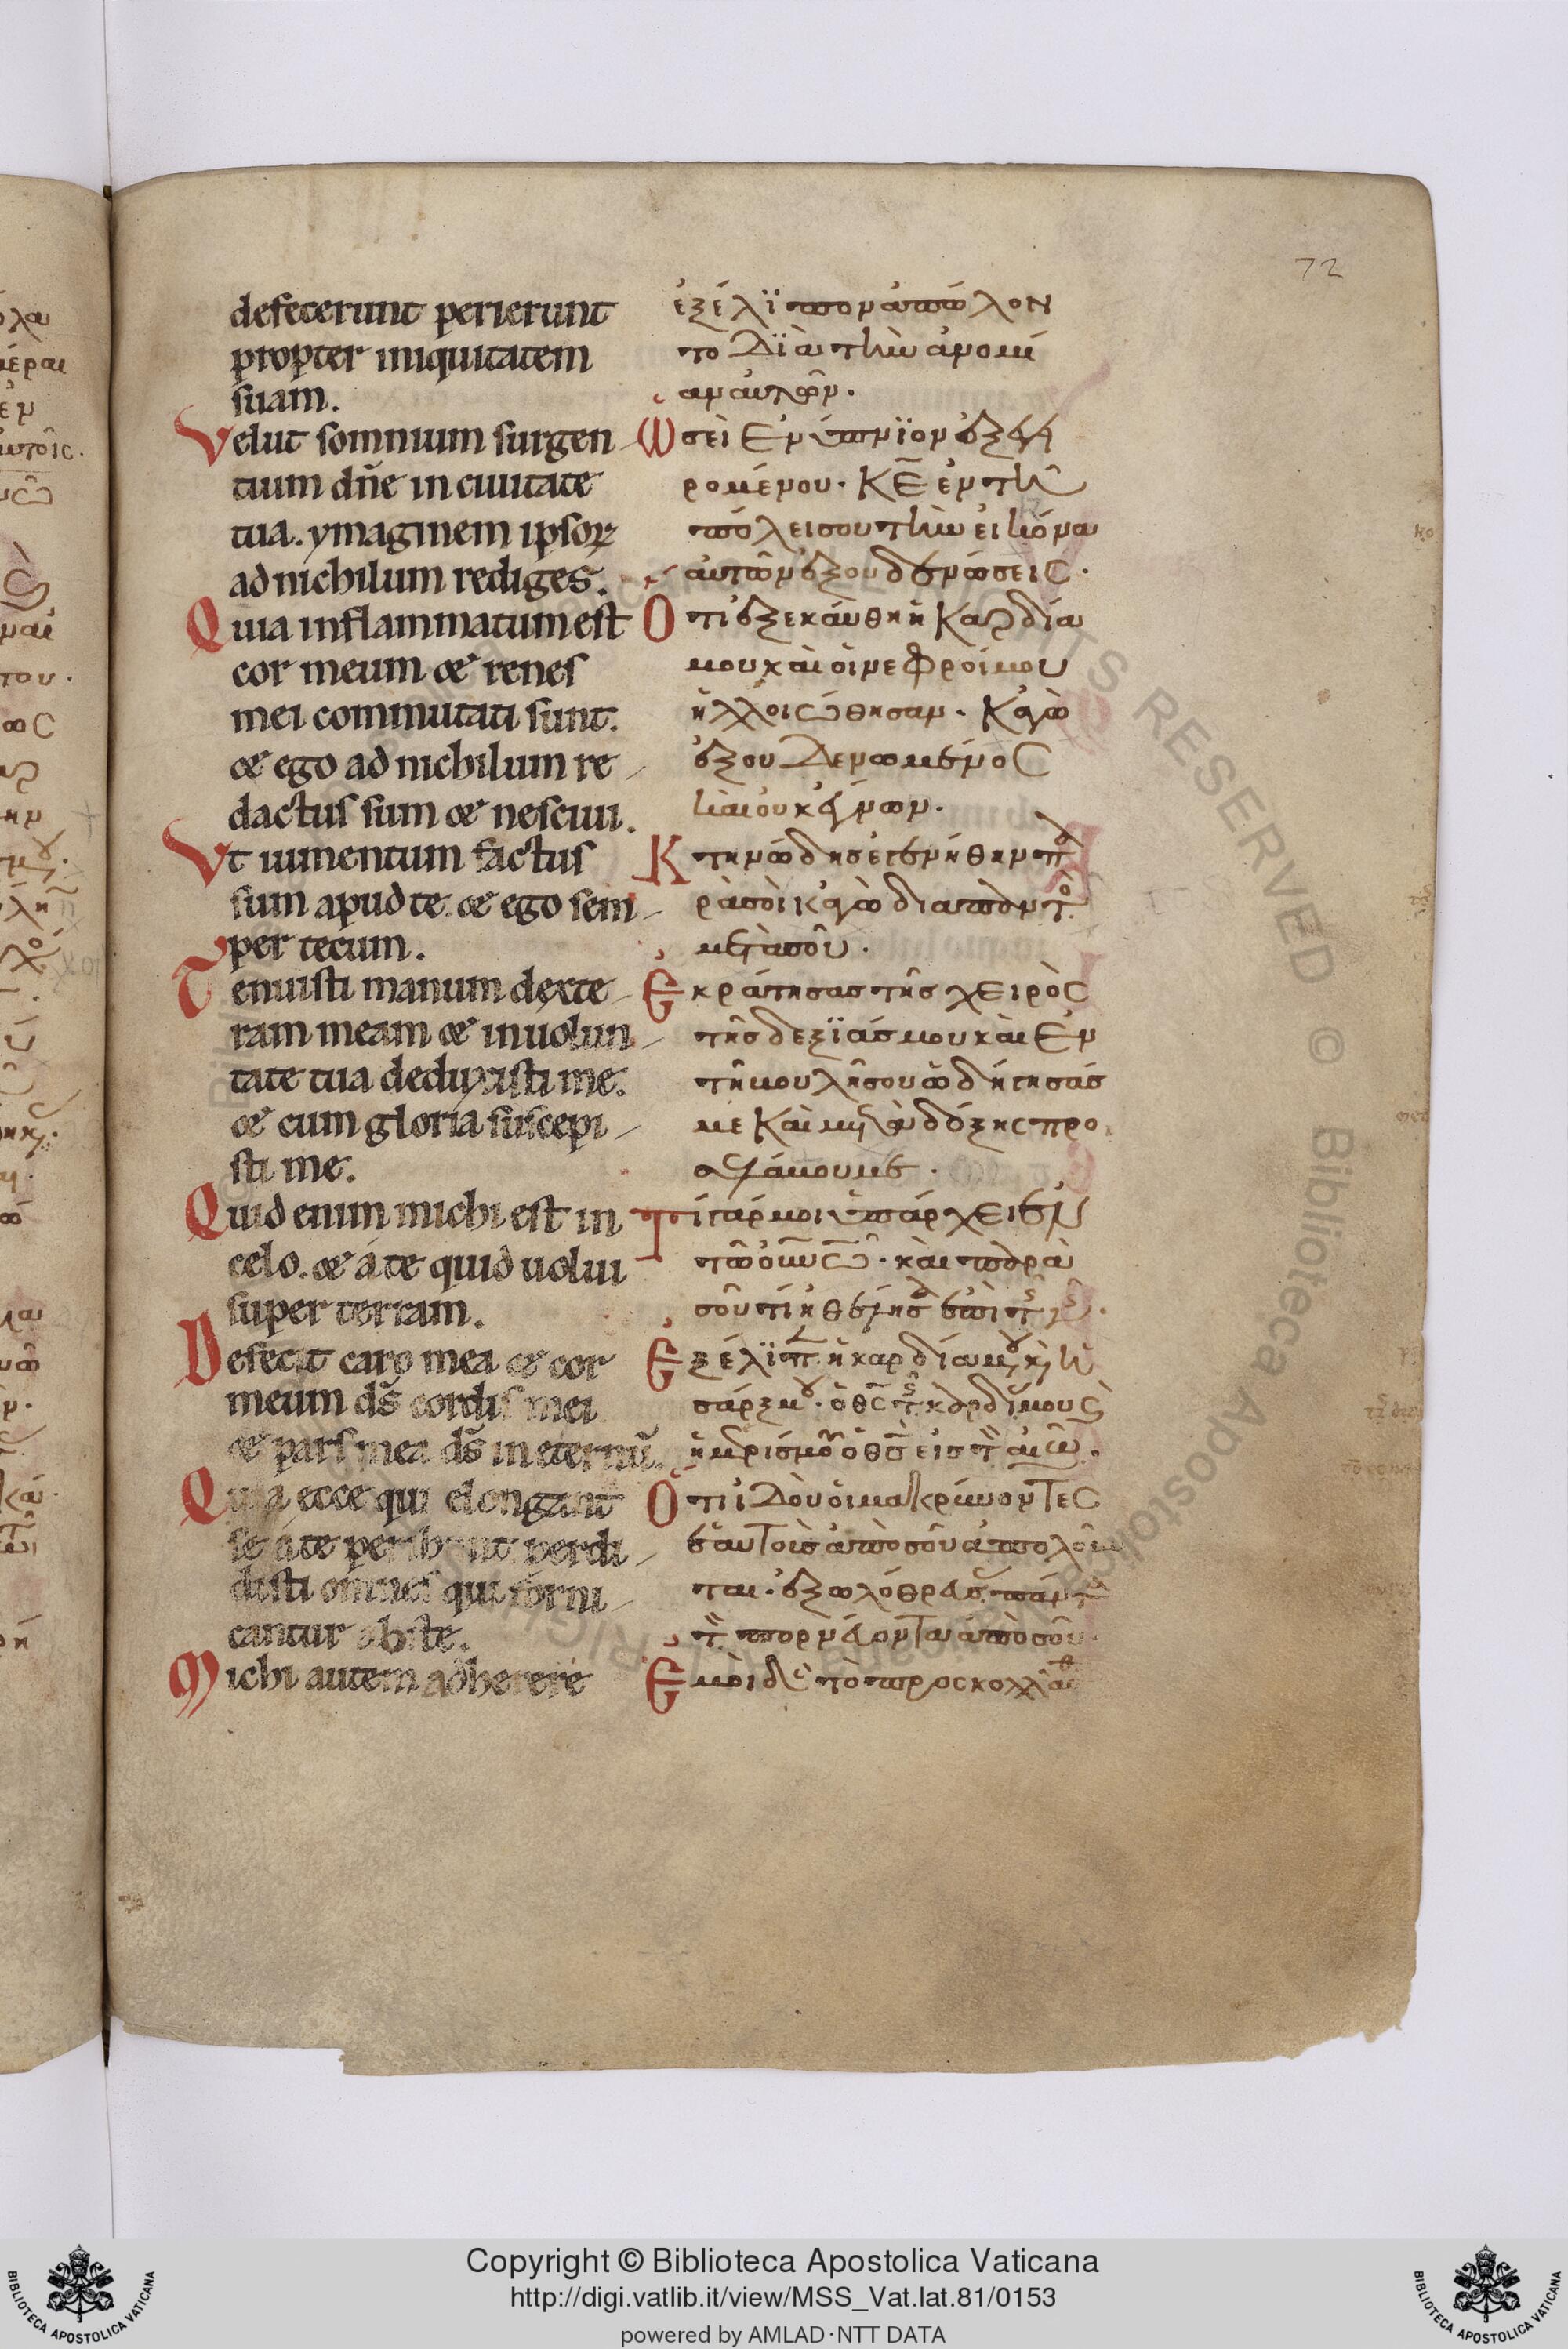 72
defecerunt perierunt
propter iniquitatem
suam.
Velut somnium surgen
tium dn̄e in ciuitate
tua. ymaginem ipsoꝝ
ad nichilum rediges.
Quia inflammatum est
cor meum & renes
mei commutati sunt.
& ego ad nichilum re
dactus sum & nesciui.
Vt iumentum factus
sum apud te. & ego sem
per tecum.
Tenuisti manum dexte
ram meam & in uolun
tate tua deduxisti me.
& cum gloria suscepi
sti me.
Quid enim michi est in
celo. & á te quid uolui
super terram.
Defecit caro mea & cor
meum ds̄ cordis mei
& pars mea ds̄ in eternū.
Quia ecce qui elongant
se á te peribunt perdi
disti omnes qui forni
cantur abs te.
Michi autem adherere
ἐξέλϊπον ἀπώλον
το Δϊὰ τὴν ἀνομί
αν ἀυτῶν.
Ὡσεὶ Ἐνύπνϊον ἐξεγει
ρομένου. Κ̅Ε̅ ἐν τῆ
πόλει σου τὴν εἰκόνα
ἀυτῶν ἐξουδενώσεις.
Ὅτι ἐξεκάυθη ἡ Καρδία
μου κὰι ὁι νεφρόι μου
ἠλλοιώθησαν. Κἀγὼ
ἐξουΔενωμένος
κὰι ὀυκ ἔγνων.
Κτηνώδησ ἐγενήθην π
ρὰ σὸι κἀγὼ διαπαντ
μετὰ σοῦ.
Ἐκράτησασ τῆσ χειρὸς
τῆσ δεξϊάσ μου κὰι Ἐν
τῆ μουλῆ σου ὡδήγησάσ
με Κὰι μετὰ δόξης προ
σελάμου με.
Τί γάρ μοι ὑπάρχει ἐν
τῶ ὀυν̅ῶ. κὰι παρὰ
σοῦ τί ἠθέλησα ἐπὶ τ γ.
Ἐξέλϊπ ἡ καρδία μου κ ἡ
σάρξ μου. ὁ θς̅ τ καρδίμου ς
ἡ μερίσ μου ὁ θσ̅ εἰσ τ αἰῶ.
Ὅτι ἰΔὸυ ὁι μακρύνοντες
ἑαυτοὺσ ἀπὸ σοῦ ἀπολοῦν
ται. ἐξωλόθρευσ πάντ
τ πορνέυοντα ἀπὸ σοῦ.
Ἐμὸι δὲ τὸ προσκολλᾶσ
Copyright © Biblioteca Apostolica Vaticana
http://digi.vatlib.it/view/MSS_Vat.lat.81/0153
powered by AMLAD·NTT DATA